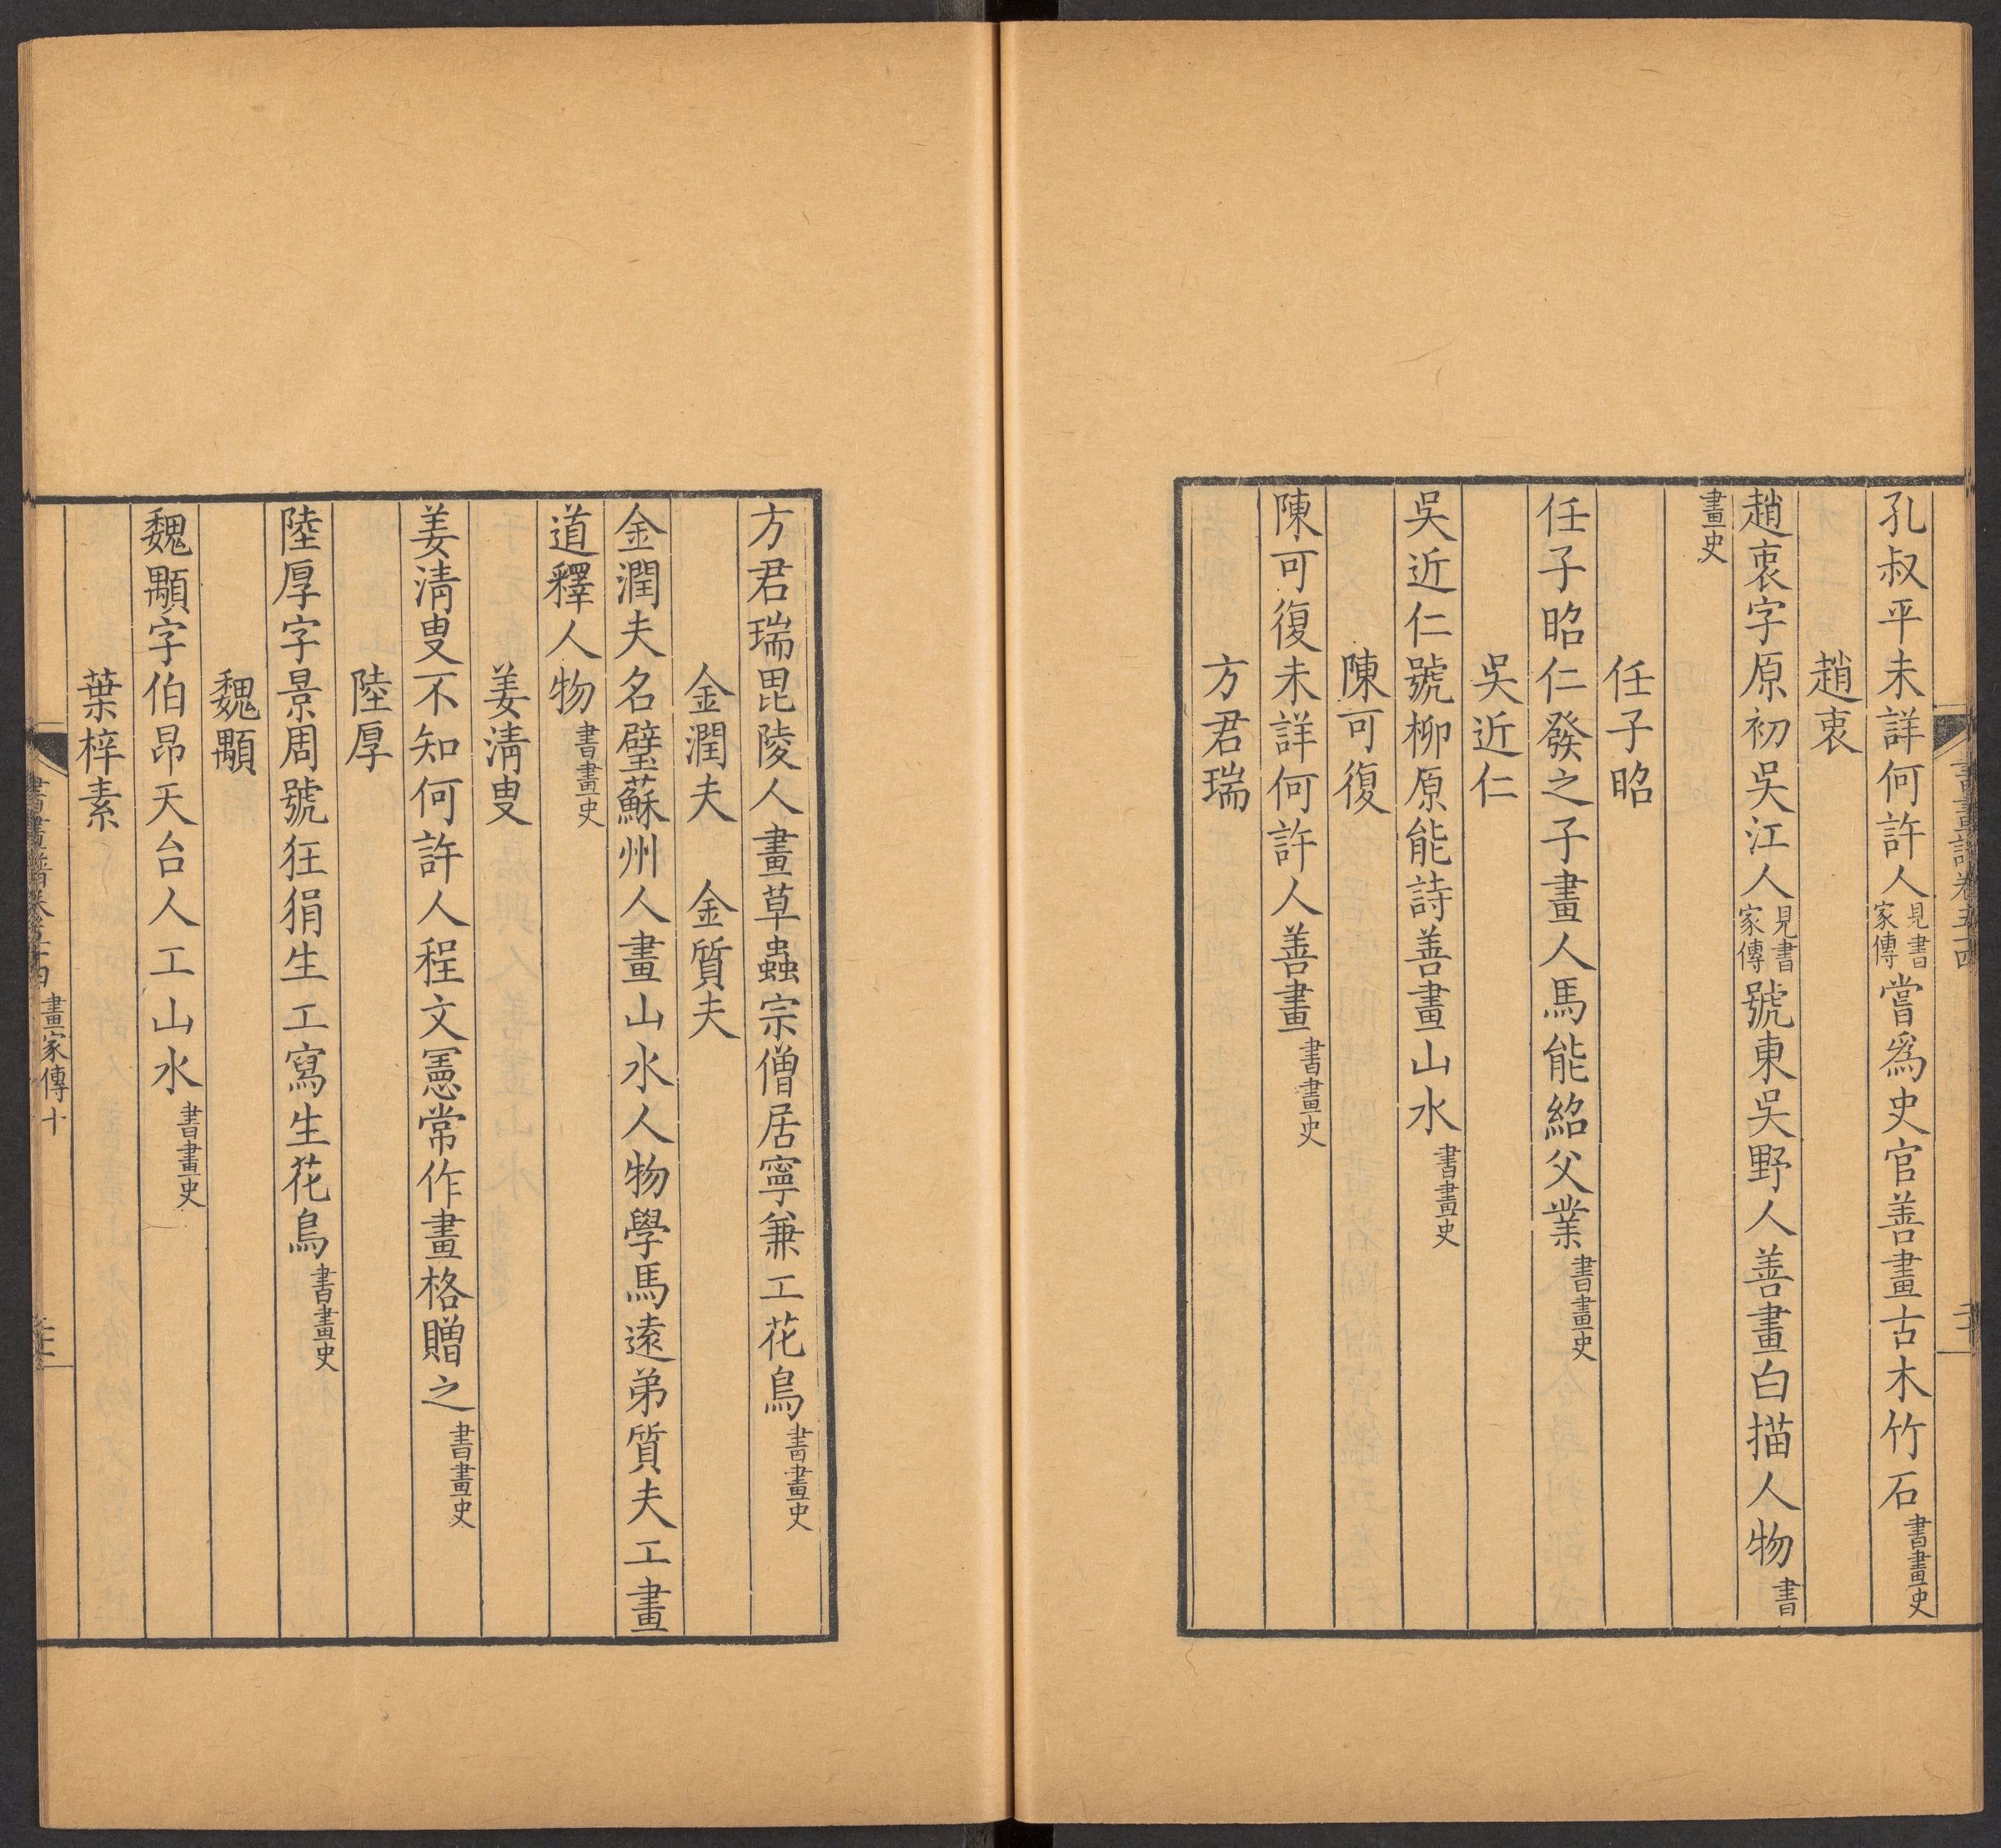 孔叔平未詳何許人見書家傳嘗爲史官善畫古木竹石書畫史
趙衷
趙衷字原初吳江人見書家傳號東吳野人善畫白描人物書
畫史
任子昭
任子昭仁發之子畫人馬能紹父業書畫史
吳近仁
吳近仁號柳原能詩善畫山水書畫史
陳可復
陳可復未詳何許人善畫書畫史
方君瑞
方君瑞毘陵人畫草蟲宗僧居寧兼工花鳥書畫史
金潤夫 金質夫
金潤夫名璧蘇州人畫山水人物學馬遠弟質夫工畫
道釋人物書畫史
姜清叟
姜清叟不知何許人程文憲常作畫格贈之書畫史
陸厚
陸厚字景周號狂狷生工寫生花鳥書畫史
魏顒
魏顒字伯昂天台人工山水書畫史
葉梓素
畫家傳十